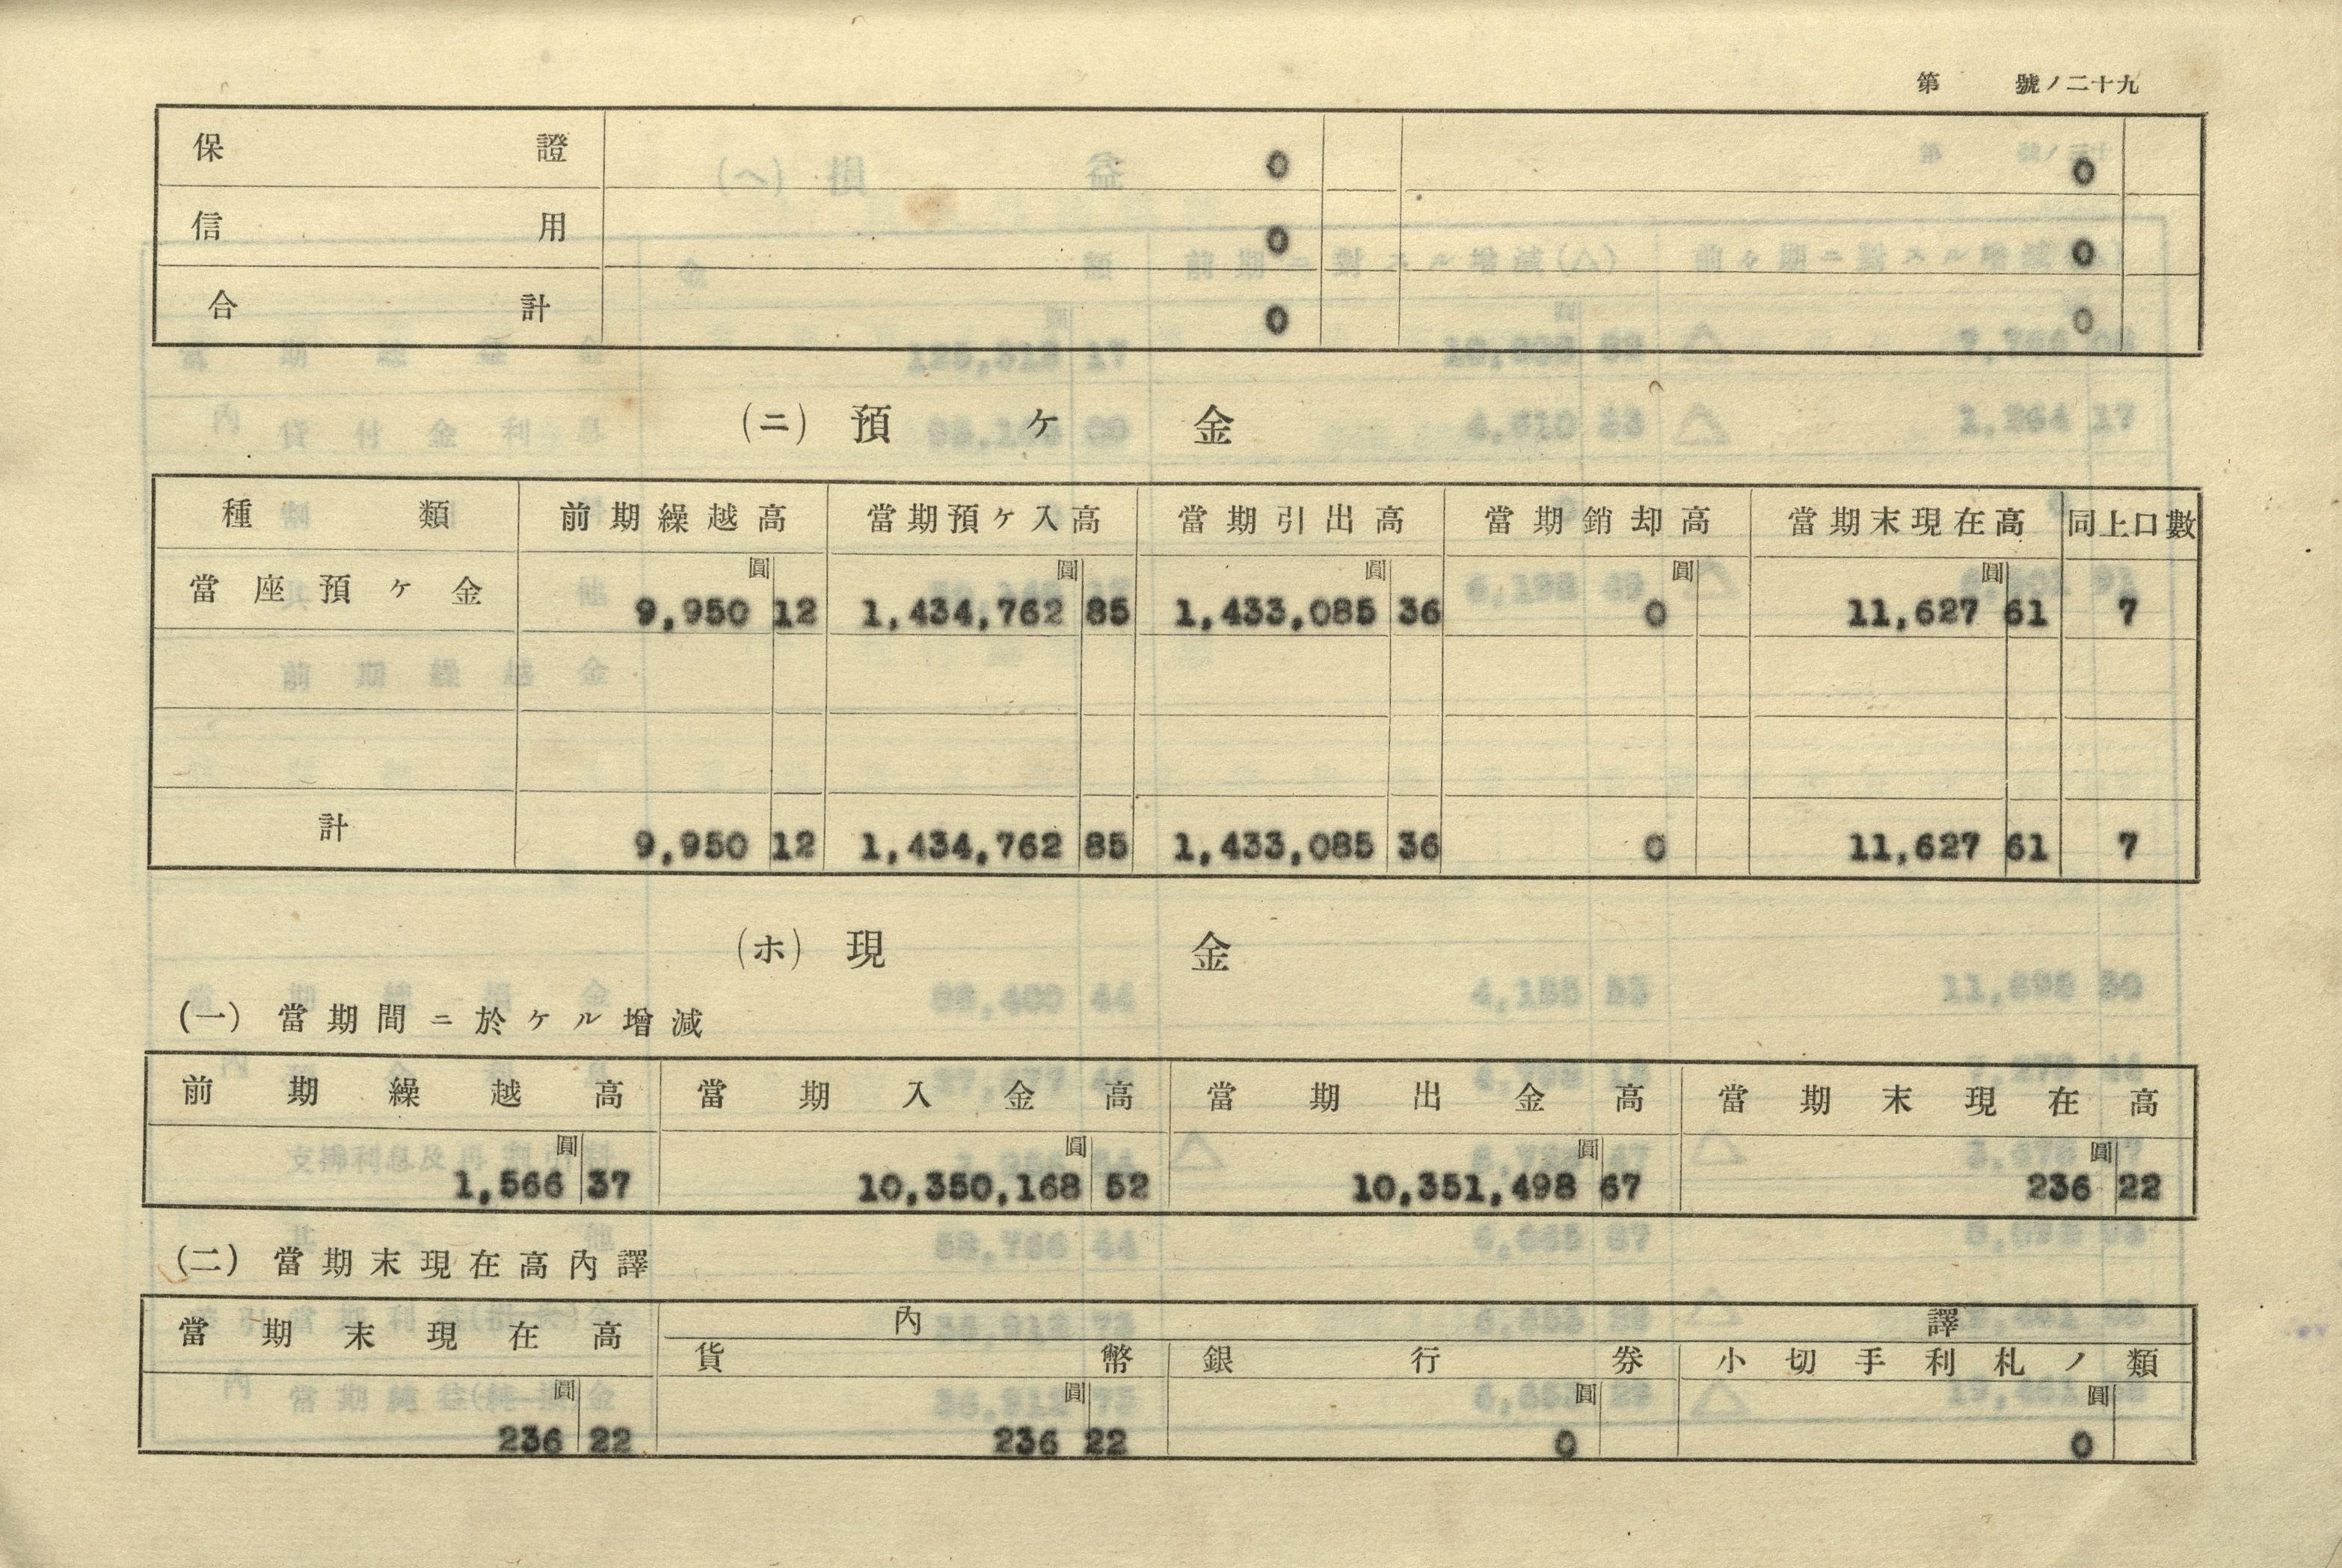 第　號ノ二十九
保證 0 0
信用 0 0
合計 0 0
(ニ) 預ケ金
種類 前期繰越高 當期預ケ入高 當期引出高 當期銷却高 當期末現在高 同上口數
圓 圓 圓 圓 圓
當座預ケ金 9,950 12 1,434,762 85 1,433,085 36 0 11,627 61 7
計 9,950 12 1,434,762 85 1,433,085 36 0 11,627 61 7
(ホ) 現金
(一) 當期間ニ於ケル增減
前期繰越高 當期入金高 當期出金高 當期末現在高
圓 圓 圓 圓
1,566 37 10,350,168 52 10,351,498 67 236 22
(二) 當期末現在高內譯
當期末現在高 內譯
貨幣 銀行券 小切手利札ノ類
圓 圓 圓 圓
236 22 236 22 0 0